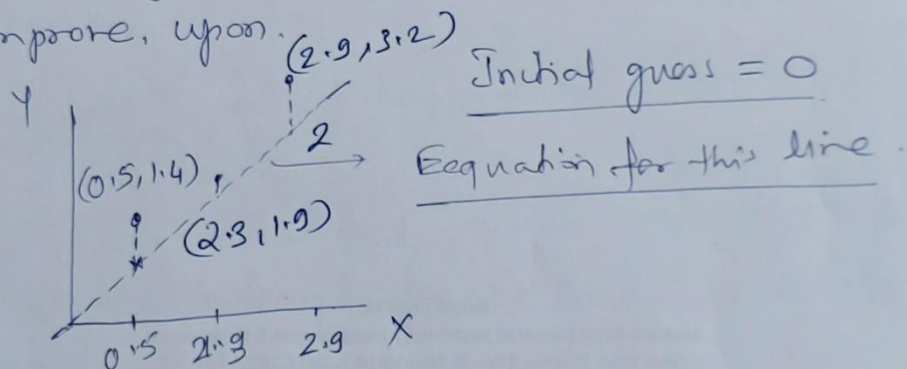 improve, upon.
(2.9,3.2)
Initial guess = 0
Y
2
Eequation for this line.
(0.5,1.4)
(2.3,1.9)
0.5 2.9 X